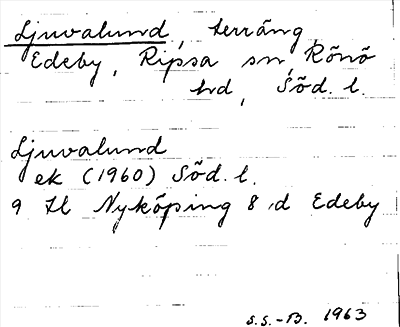 Ljuvalund, terräng,
Edeby, Ripsa sn, Rönö
hd, Söd. l.
Ljuvalund
ek (1960) Söd. l.
9 H Nyköping 8 d Edeby
S.S.-B. 1963